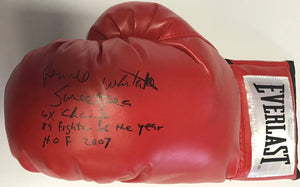 Pernell Whitaker
Sweetpea
6X Champ
89 fighter of the year
HOF 2007
EVERLAST